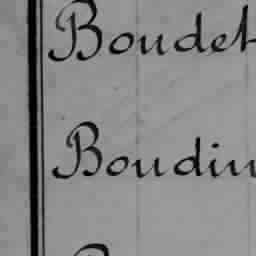 Boudet
Boudin